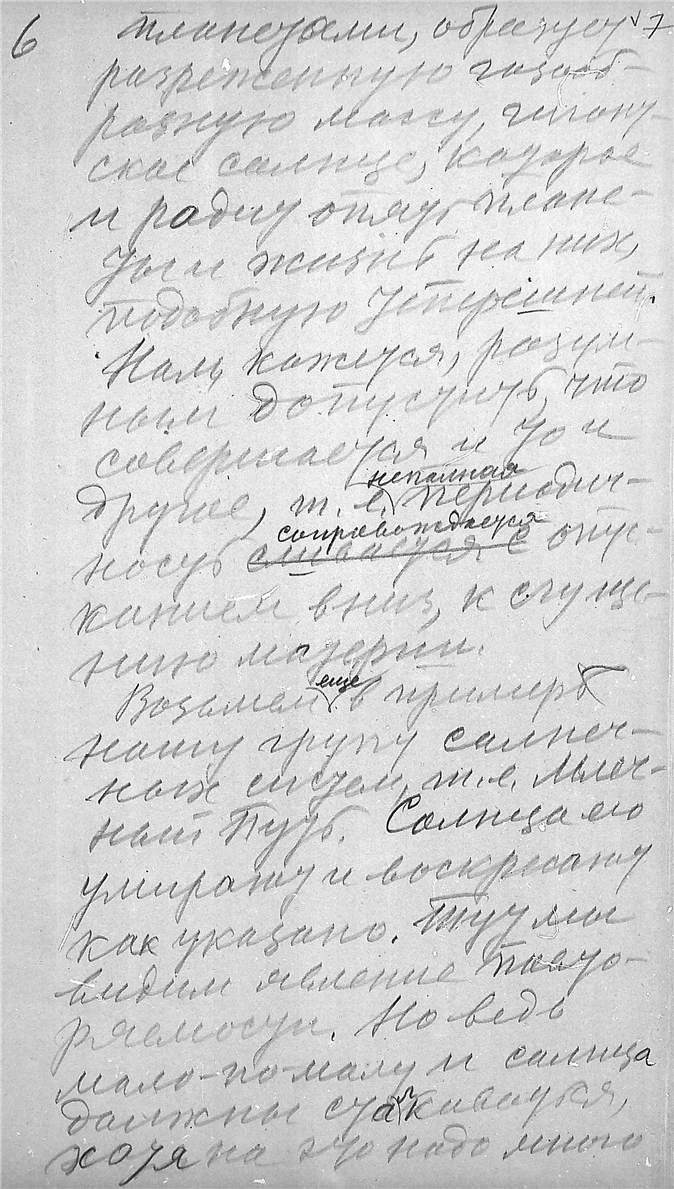 6 7
планетами, образует
разреженную газооб-
разную массу, гигант-
ское солнце, которое
и родит опять плане-
ты и жизнь на них,
подобную теперешней.
Нам, кажется, разум-
ным допустить, что
совершается и то и
неполная
другое, т. е. периодич-
сопровождается
ность сливается с опус-
канием вниз, к сгуще-
нию материи.
еще
Возьмем в пример
нашу групу солнеч-
ных систем, т. е. Млеч-
ный Путь. Солнца его
умирают и воскресают
как указано. Тут мы
видим явление повто-
ряемости. Но ведь
мало-по-малу и солнца
должны сталкиваться,
хотя на это надо много